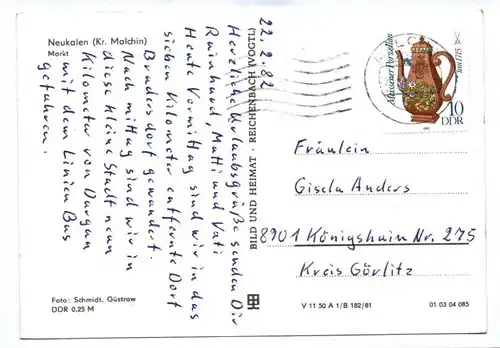 Neukalen (Kr. Malchin)
Markt
22.2.82
Herzliche Urlaubsgrüße senden Dir
Reinhard, Mutti und Vati
Heute Vormittag sind wir in das
sieben Kilometer entfernte Dort
Brudersdorf gewandert.
Nach mittag sind wir in
diese kleine Stadt neun
Kilometer von Dargun
mit dem Linien Bus
gefahren.
Foto: Schmidt, Güstrow
DDR 0,25 M
BILD UND HEIMAT · REICHENBACH (VOGTL)
Meissner Porzellan
um 1715
10
DDR
Fräulein
Gisela Anders
8901 Königshain Nr. 275
Kreis Görlitz
V 11 50 A 1/B 182/81
01 03 04 085